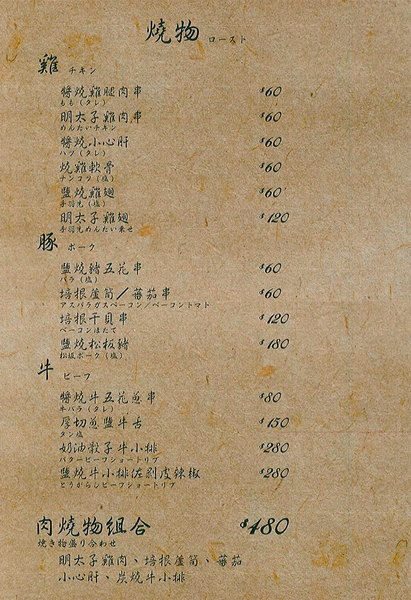 燒物 ロースト
雞 チキン
醬燒雞腿肉串 $60
もも(タレ)
明太子雞肉串 $60
めんたいチキン
醬燒小心肝 $60
ハツ(タレ)
燒雞軟骨 $60
ナンコツ(塩)
鹽燒雞翅 $60
手羽先(塩)
明太子雞翅 $120
手羽先めんたい乗せ
豚 ポーク
鹽燒豬五花串 $60
バラ(塩)
培根蘆筍/蕃茄串 $60
アスパラガスベーコン/ベーコントマト
培根干貝串 $120
ベーコンほたて
鹽燒松板豬 $180
松坂ポーク(塩)
牛 ビーフ
醬燒牛五花蔥串 $80
牛バラ(タレ)
厚切蔥鹽牛舌 $150
タン塩
奶油骰子牛小排 $280
バタービーフショートリブ
鹽燒牛小排佐剝皮辣椒 $280
とうがらしビーフショートリブ
肉燒物組合 $480
焼き物盛り合わせ
明太子雞肉、培根蘆筍、蕃茄
小心肝、炭燒牛小排